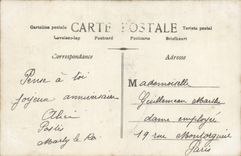 Cartolina postale CARTE POSTALE Tarjeta postal
Levelezo-lap Postcard Postkarte Briefkaart
Correspondance Adresse
Pense à toi
Joyeux anniversaire
Postes
Marly le Roi
Mademoiselle
Guillemeau Marthe
dame employée
19 rue Montorgueil
Paris